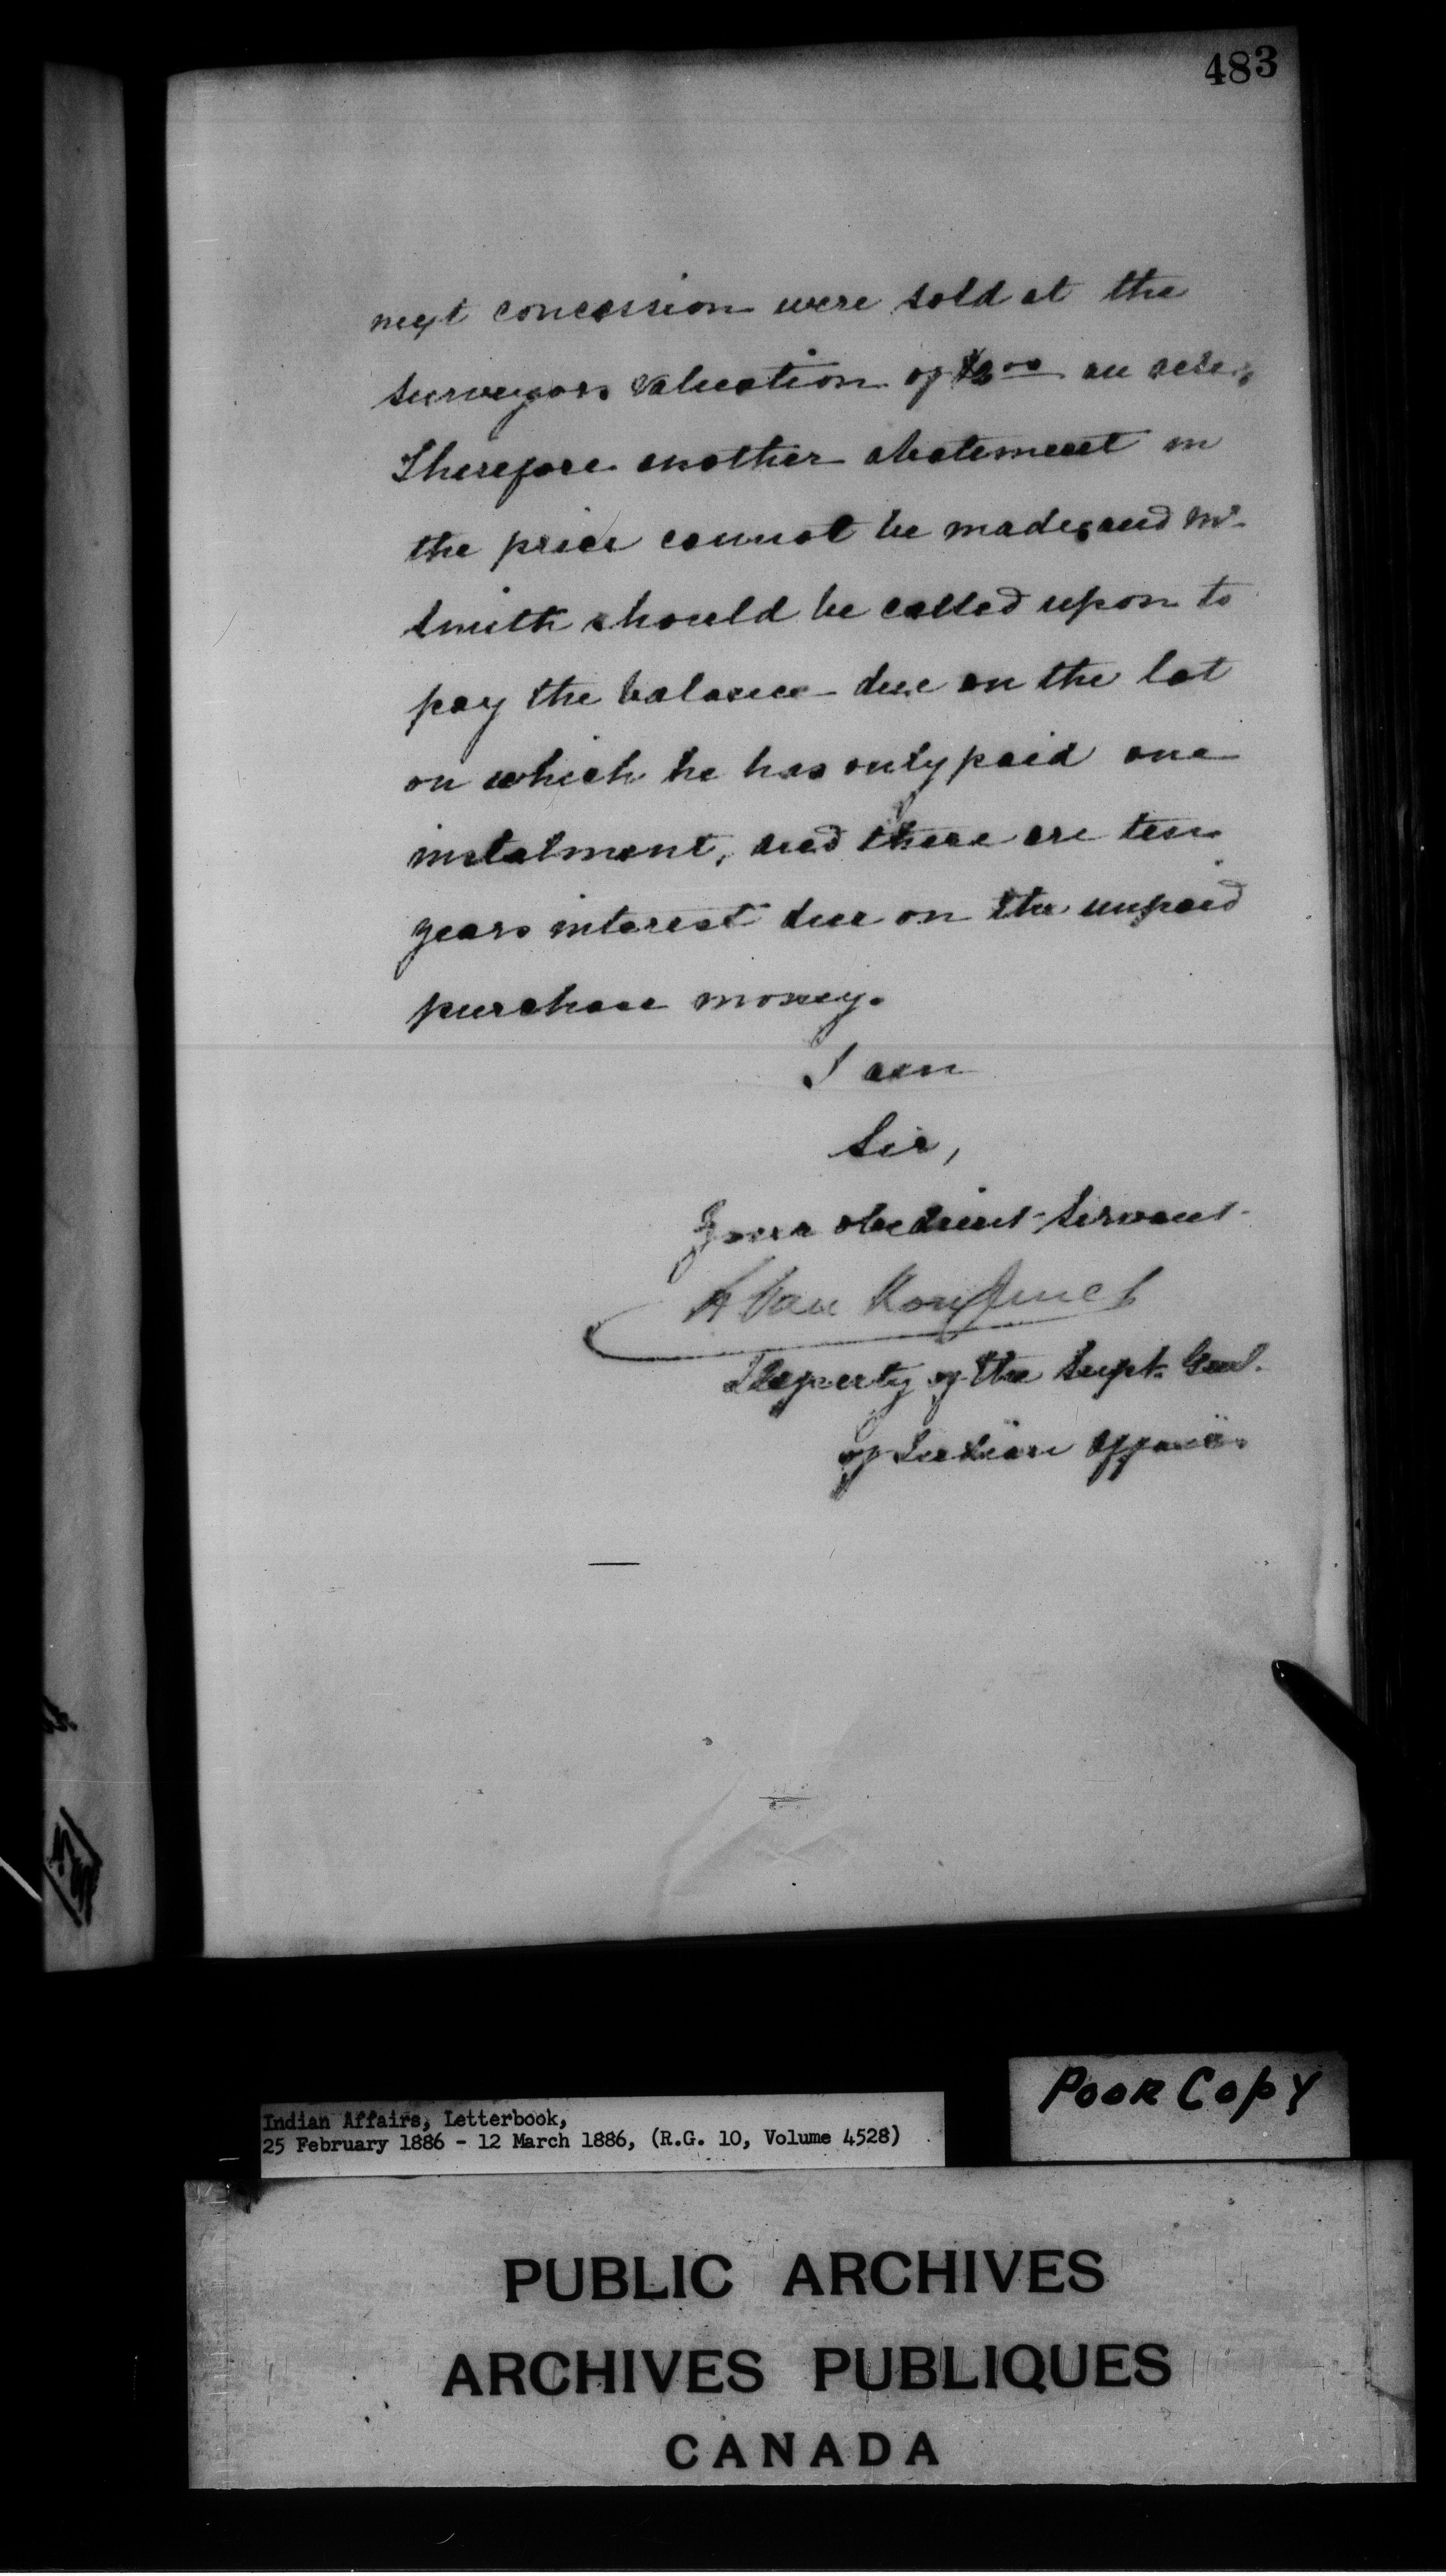 483
next concession were sold at the
surveyors valuation of $2.00 an acre,
Therefore another abatement in
the price cannot be made, and Mr.
Smith should be called upon to
pay the balance due on the lot
on which he has only paid one
instalment, and there are ten
years interest due on the unpaid
purchase money.
I am
Sir,
Your obedient Servant
L. VanKoughnet
Deputy of the Supt. Genl.
of Indian Affairs
Poor Copy
Indian Affairs, Letterbook,
25 February 1886 - 12 March 1886, (R.G. 10, Volume 4528)
PUBLIC ARCHIVES
ARCHIVES PUBLIQUES
CANADA